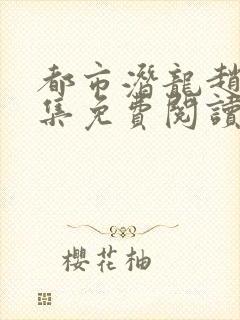 都市潛龍趙
集免費閱讀
櫻花柚